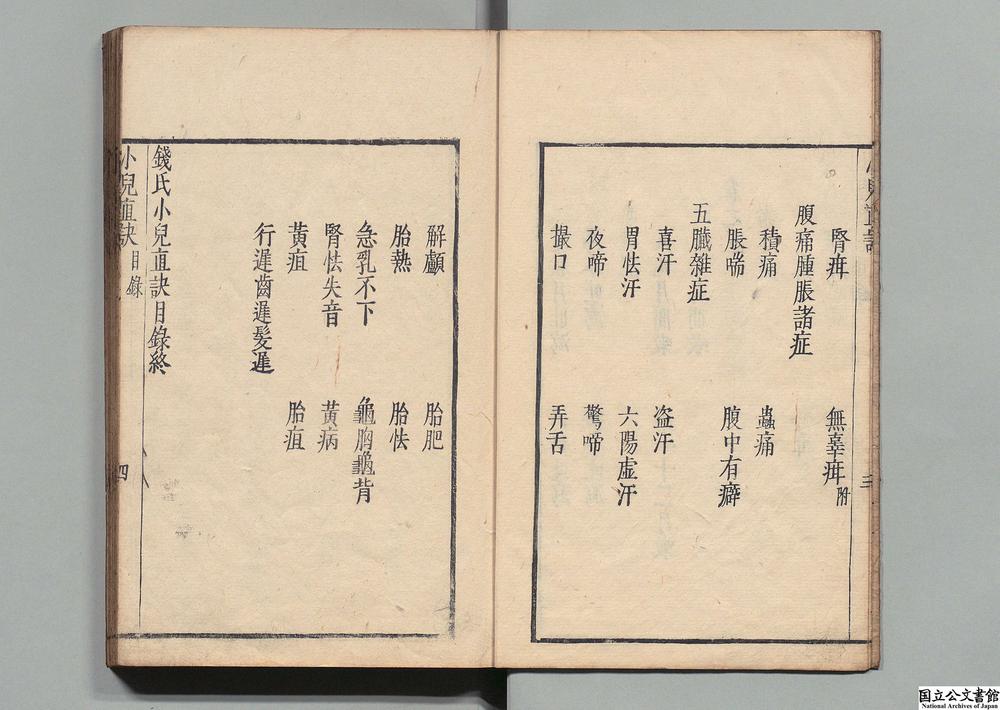 腎疳 無辜疳附
腹痛腫脹諸症
積痛 蟲痛
脹喘 腹中有癖
五臟雜症
喜汗 盗汗
胃怯汗 六陽虛汗
夜啼 驚啼
撮口 弄舌
三
解顱 胎肥
胎熱 胎怯
急乳不下 龜胸龜背
腎怯失音 黃病
黃疸 胎疸
行遲齒遲髮遲
錢氏小兒直訣目錄終
小兒直訣 目錄 四
国立公文書館
National Archives of Japan